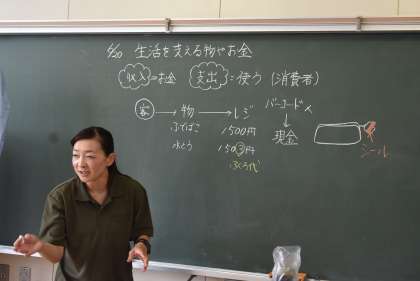 6/20 生活を支える物やお金
収入=お金 支出=使う(消費者)
客→物→レジ
バーコード
↓
現金
ふでばこ 1500円
水とう 1503円
ふくろ代
シール